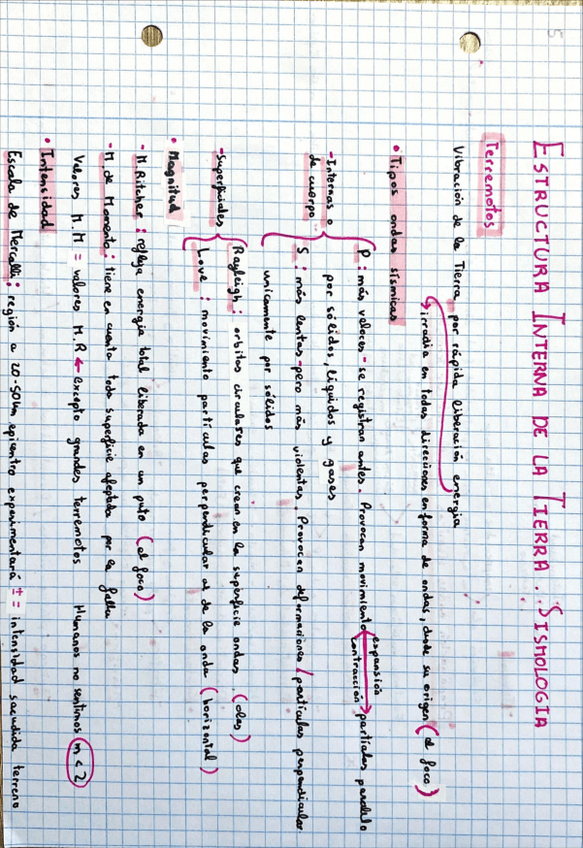 5
ESTRUCTURA INTERNA DE LA TIERRA. SISMOLOGIA
Terremotos
Vibración de la Tierra por rápida liberación energía
irradia en todas direcciones en forma de ondas, desde su origen (el foco)
• Tipos ondas sísmicas
P: más veloces - se registran antes. Provocan movimiento expansión contracción partículas paralelo
-Internas o de cuerpo
por sólidos, líquidos y gases
S: más lentas - pero más violentas. Provocan deformaciones / partículas perpendicular
unicamente por sólidos
-Superficiales
Rayleigh: orbitas circulares que crean en la superficie ondas. (olas)
Love: movimiento partículas perpendicular al de la onda (horizontal)
• Magnitud
- M. Ritcher: refleja energia total liberada en un puto (el foco)
- M. de Momento: tiene en cuenta toda superficie afeptada por la falla
Valores M.M = valores M.R ← excepto grandes terremotos Humanos no sentimos (m < 2)
• Intensidad
Escala de Mercalli: región a 20-50km epicentro experimentará ± = intensidad sacudida terreno